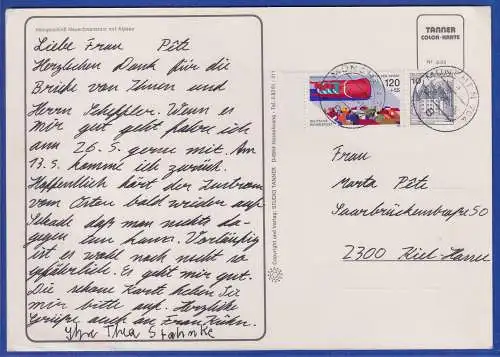 Königsschloß Neuschwanstein mit Alpsee
Liebe Frau Pête
Herzlichen Dank für die
Briefe von Ihnen und
Herrn Scheffler. Wenn es
mir gut geht fahre ich
am 26.5. gerne mit. Am
13.5. komme ich zurück.
Hoffentlich hört der Zustrom
vom Osten bald wieder auf.
Schade daß man nichts da-
gegen tun kann. Vorläufig
ist es wohl noch nicht so
gefährlich. Es geht mir gut.
Die schöne Karte heben Sie
mir bitte auf. Herzliche
Grüße auch an Frau Kühn.
Ihre Thea
Copyright und Verlag: STUDIO TANNER
TANNER
COLOR-KARTE
120
+55
DEUTSCHE BUNDESPOST
10
MÜNCHEN
Frau
Marta Pête
Saarbrückenstraße 50
2300 Kiel-Hassee